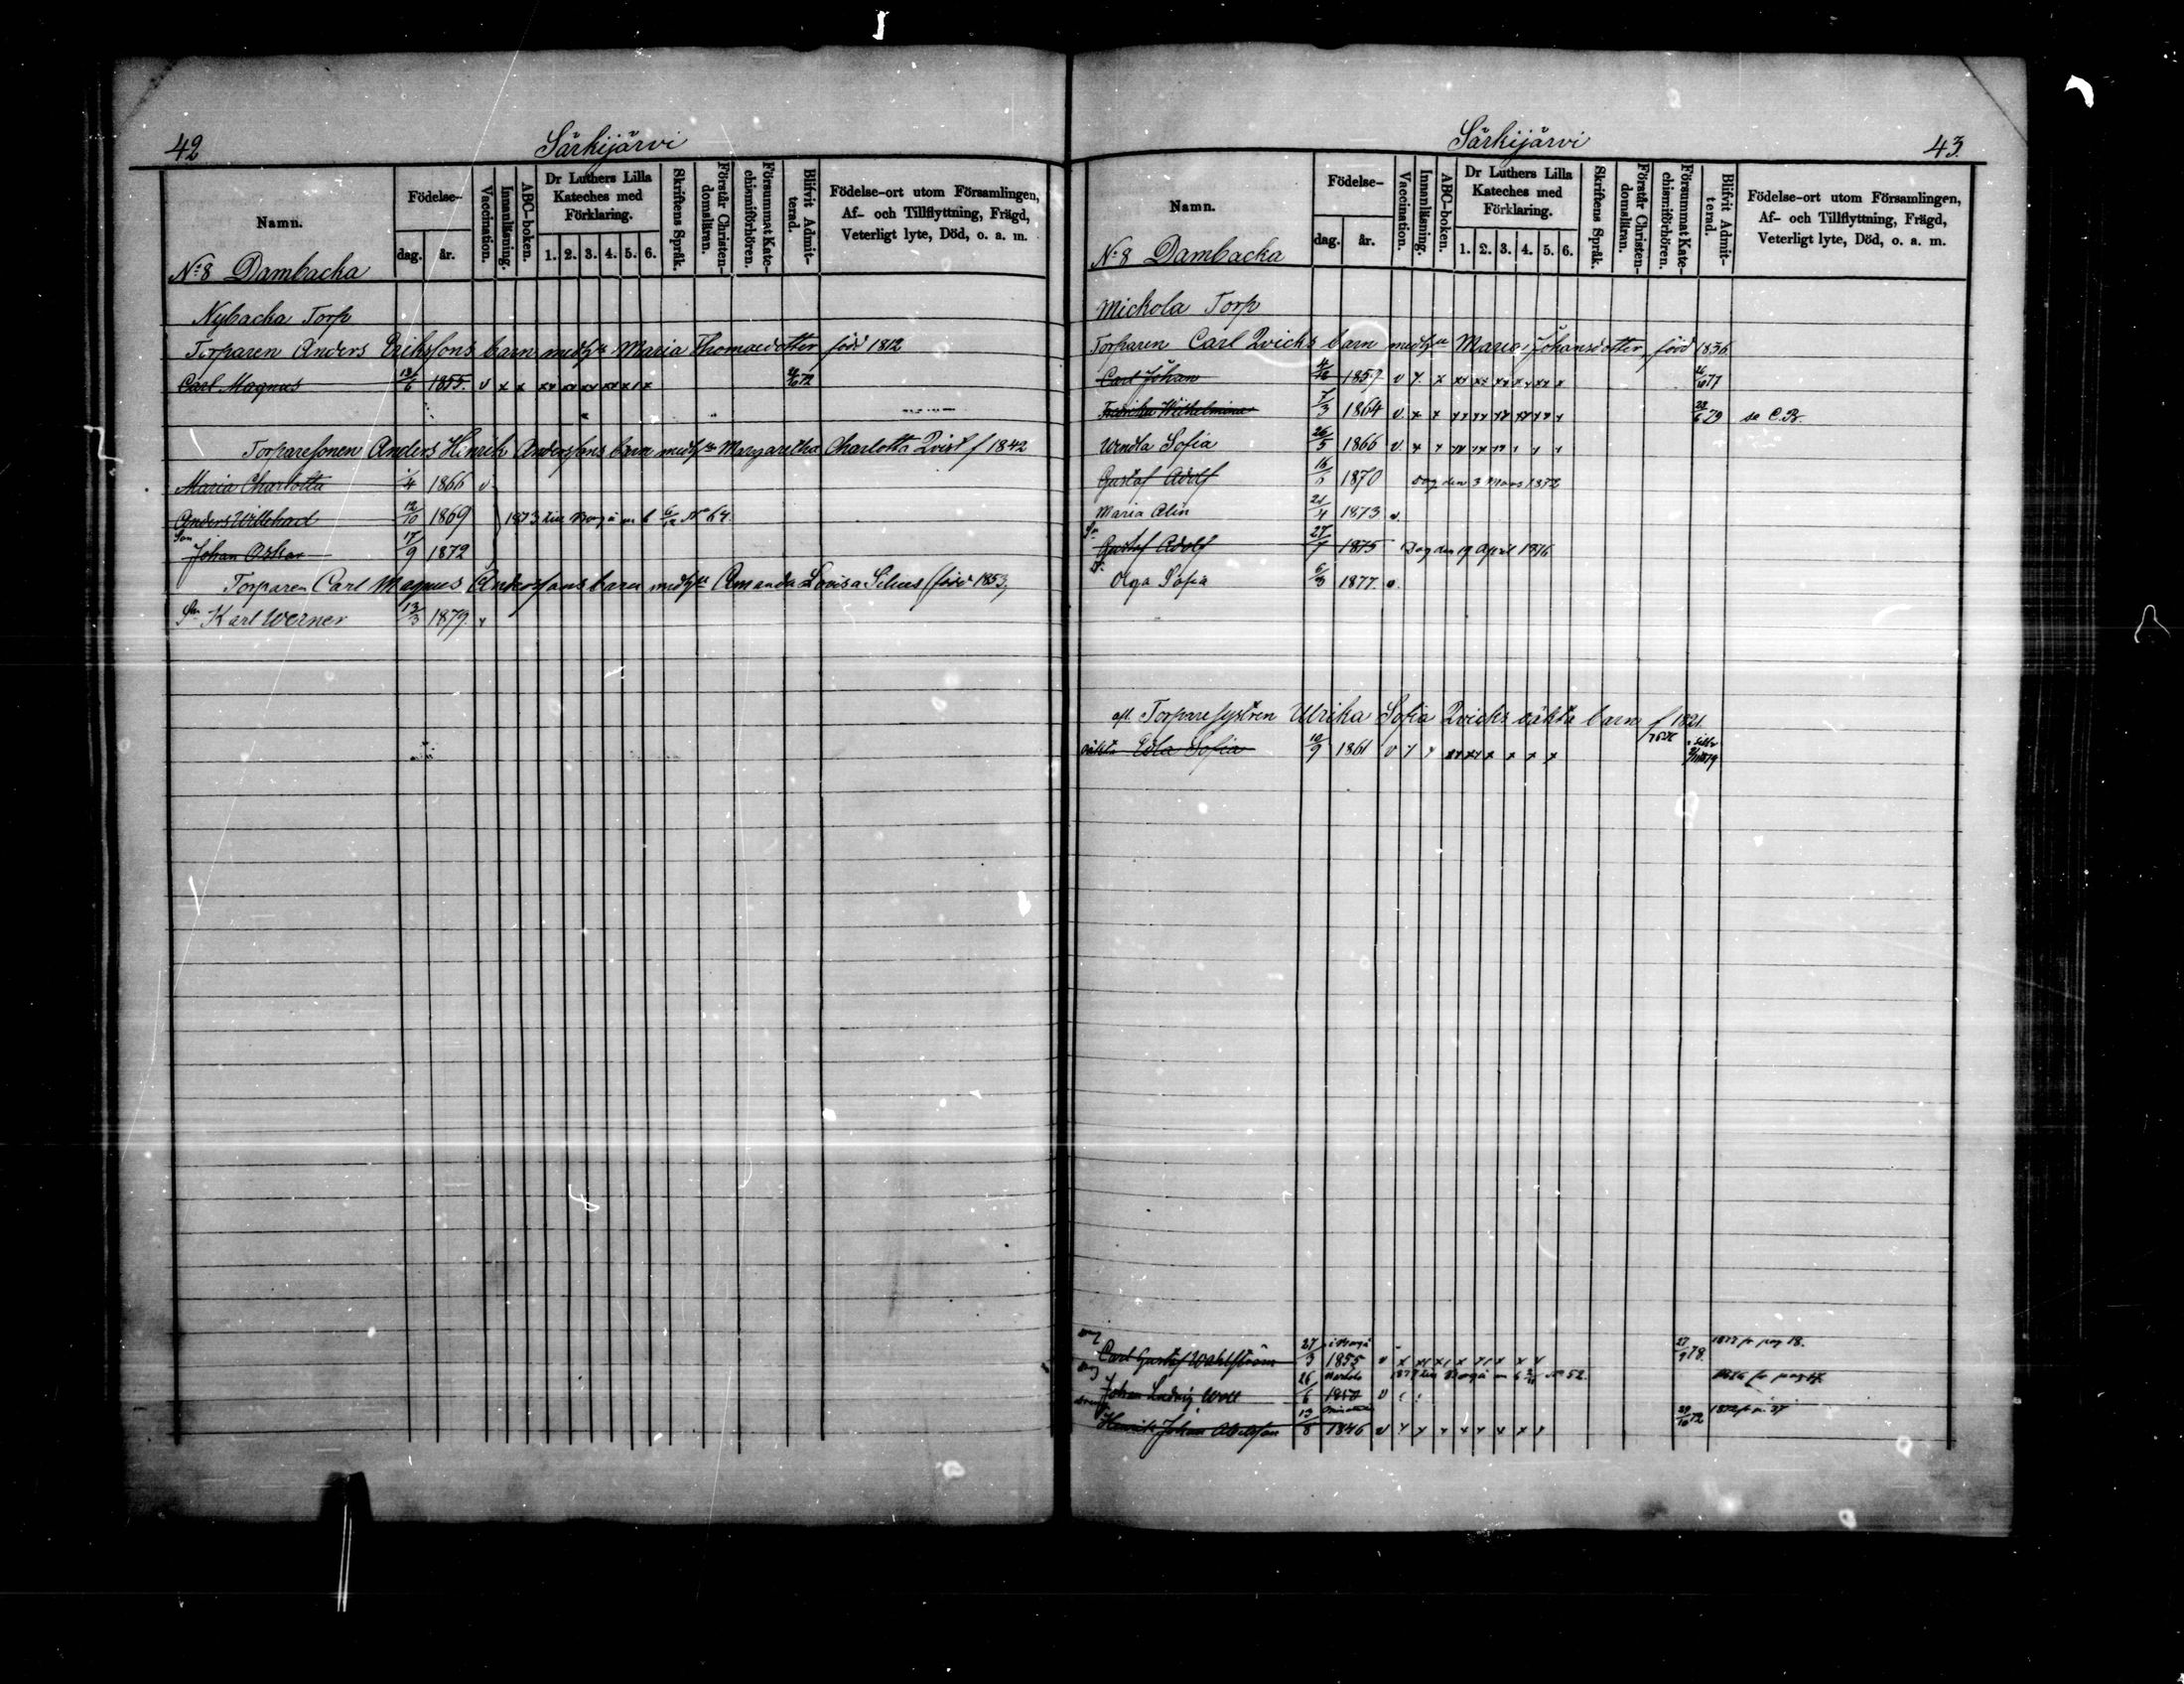 42
Särkijärvi
Namn.
Födelse-
dag.
år.
Vaccination.
Innanläsning.
ABC-boken.
Dr Luthers Lilla Kateches med Förklaring.
1. 2. 3. 4. 5. 6.
Skriftens Språk.
Förstår Christendomsläran.
Försummat Katechismiförhören.
Blifvit Admitterad.
Födelse-ort utom Församlingen,
Af- och Tillflyttning, Frägd,
Veterligt lyte, Död, o. a. m.
N:o 8 Dambacka
Nybacka Torp
Torparen Anders Erikssons barn med h:u Maria Thomasdotter född 1812
Carl Magnus 13/6 1855. v x x xx xx xx xx x x 72
Torparesonen Anders Hinrik Anderssons barn med h:u Margaretha Charlotta Qvist f 1842
Maria Charlotta /4 1866 v
Anders Willehard 12/10 1869 1873 till Borgå m b No 64.
Son Johan Oskar 17/9 1872
Torparen Carl Magnus Anderssons barn med h:u Amanda Lovisa född 1853,
Son Karl Werner 13/3 1879.
Särkijärvi
43.
Namn.
Födelse-
dag.
år.
Vaccination.
Innanläsning.
ABC-boken.
Dr Luthers Lilla Kateches med Förklaring.
1. 2. 3. 4. 5. 6.
Skriftens Språk.
Förstår Christendomsläran.
Försummat Katechismiförhören.
Blifvit Admitterad.
Födelse-ort utom Församlingen,
Af- och Tillflyttning, Frägd,
Veterligt lyte, Död, o. a. m.
N:o 8 Dambacka
Mickola Torp
Torparen Carl Qvicks barn med h:u Maria Johansdotter, född 1836
Carl Johan 1859 v x x xx xx xx x xx x 77
Fredrika Wilhelmina 7/3 1864 v x x 23/6 79 se C.B.
Wendla Sofia 26/5 1866 v
Gustaf Adolf 16/ 1870 dog den 3 Mars 1872
Maria Alin 21/4 1873 v.
Son Gustaf Adolf 27/7 1875 Dog den 19 April 1876
D. Olga Sofia 6/3 1877. v.
afl. Torparesystren Ulrika Sofia Qvicks oäkta barn f 1821.
oäkta Edla Sofia 10/9 1861 v 79
Carl Gustaf Wahlström 27/3 i Borgå 1855 v x 78. 1877 fr pag 18.
Johan Ludvig Woll 26/6 1850 v 1877 till Borgå m No 52.
Henrik Johan Abelsson 13/8 1846 v 72